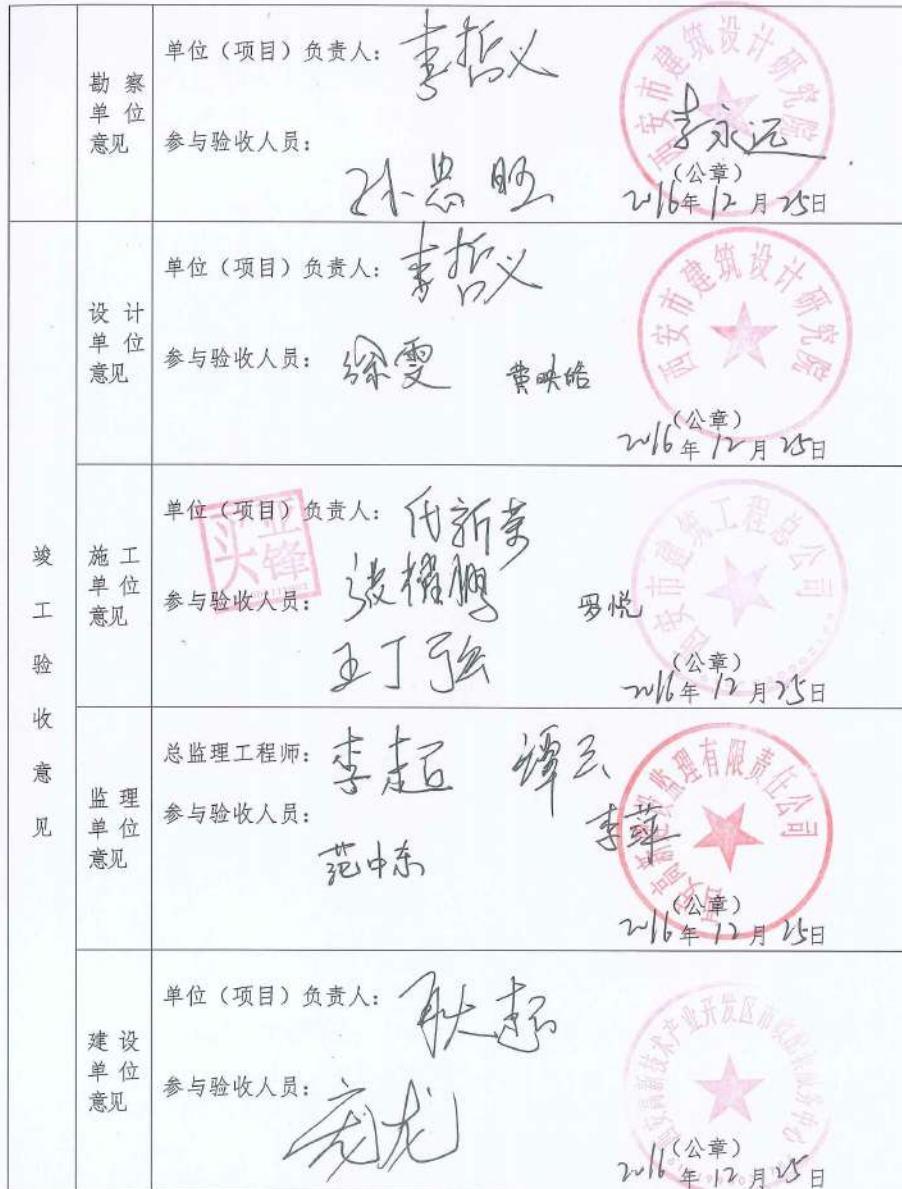 勘察
单位
意见
单位（项目）负责人：李哲义
参与验收人员：
李永远
西安市建筑设计研究院
（公章）
2016年12月25日
竣工验收意见
设计
单位
意见
单位（项目）负责人：李哲义
参与验收人员：徐雯
西安市建筑设计研究院
（公章）
2016年12月25日
施工
单位
意见
单位（项目）负责人：代新荣
参与验收人员：张耀鹏 罗悦
王丁弘
西安市建筑工程总公司
（公章）
2016年12月25日
监理
单位
意见
总监理工程师：李超 谭云
参与验收人员：李萍
范中东
建设监理有限责任公司
（公章）
2016年12月25日
建设
单位
意见
单位（项目）负责人：耿超
参与验收人员：
庞龙
（公章）
2016年12月25日